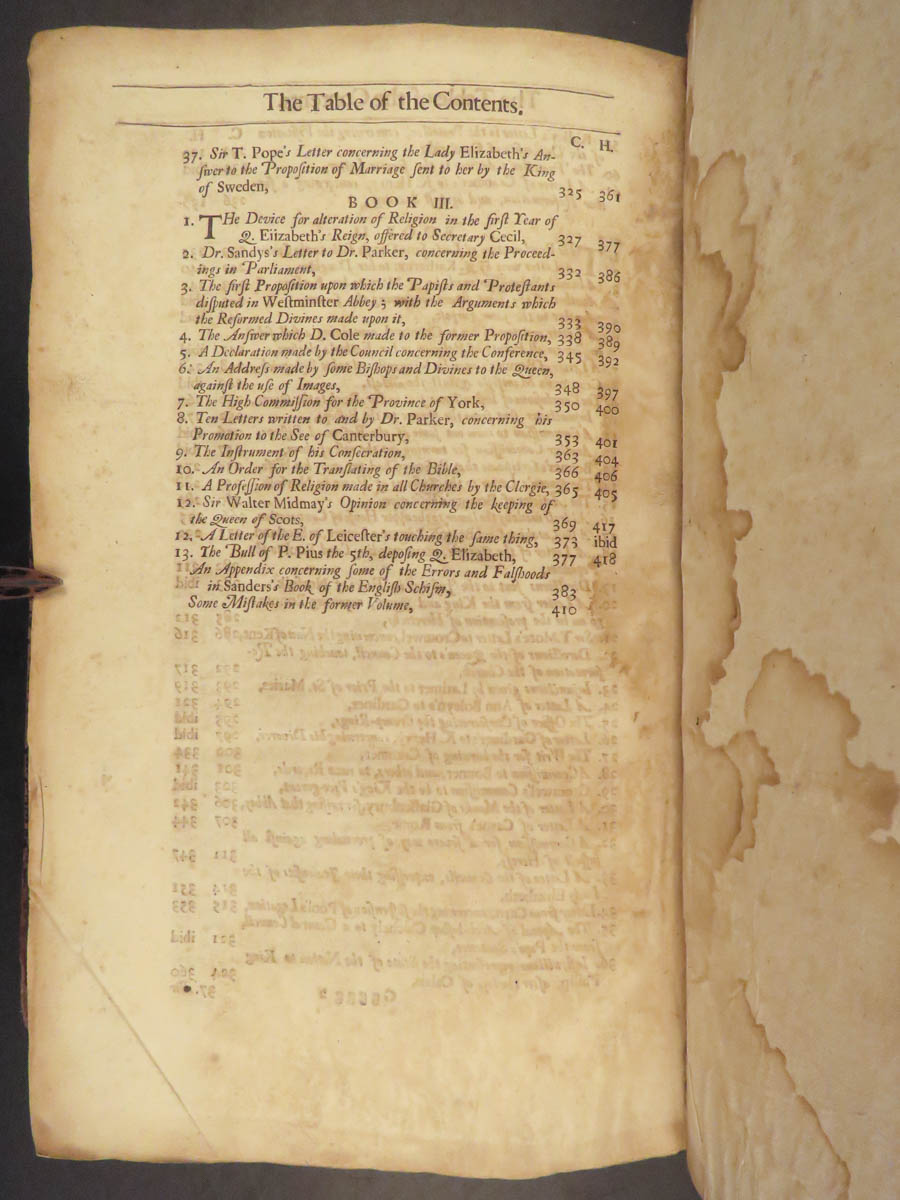 The Table of the Contents.
C. H.
37. Sir T. Pope's Letter concerning the Lady Elizabeth's An-
ſwer to the Propoſition of Marriage ſent to her by the King
of Sweden, 325 361
BOOK III.
1. THe Device for alteration of Religion in the firſt Year of
Q. Elizabeth's Reign, offered to Secretary Cecil, 327 377
2. Dr. Sandys's Letter to Dr. Parker, concerning the Proceed-
ings in Parliament, 332 386
3. The firſt Propoſition upon which the Papiſts and Proteſtants
diſputed in Weſtminſter Abbey; with the Arguments which
the Reformed Divines made upon it, 333 390
4. The Anſwer which D. Cole made to the former Propoſition, 338 389
5. A Declaration made by the Council concerning the Conference, 345 392
6. An Addreſs made by ſome Biſhops and Divines to the Queen,
againſt the uſe of Images, 348 397
7. The High Commiſſion for the Province of York, 350 400
8. Ten Letters written to and by Dr. Parker, concerning his
Promotion to the See of Canterbury, 353 401
9. The Inſtrument of his Conſecration, 363 404
10. An Order for the Tranſlating of the Bible, 366 406
11. A Profeſſion of Religion made in all Churches by the Clergie, 365 405
12. Sir Walter Midmay's Opinion concerning the keeping of
the Queen of Scots, 369 417
12. A Letter of the E. of Leiceſter's touching the ſame thing, 373 ibid
13. The Bull of P. Pius the 5th, depoſing Q. Elizabeth, 377 418
An Appendix concerning ſome of the Errors and Falſhoods
in Sanders's Book of the Engliſh Schiſm, 383
Some Miſtakes in the former Volume, 410